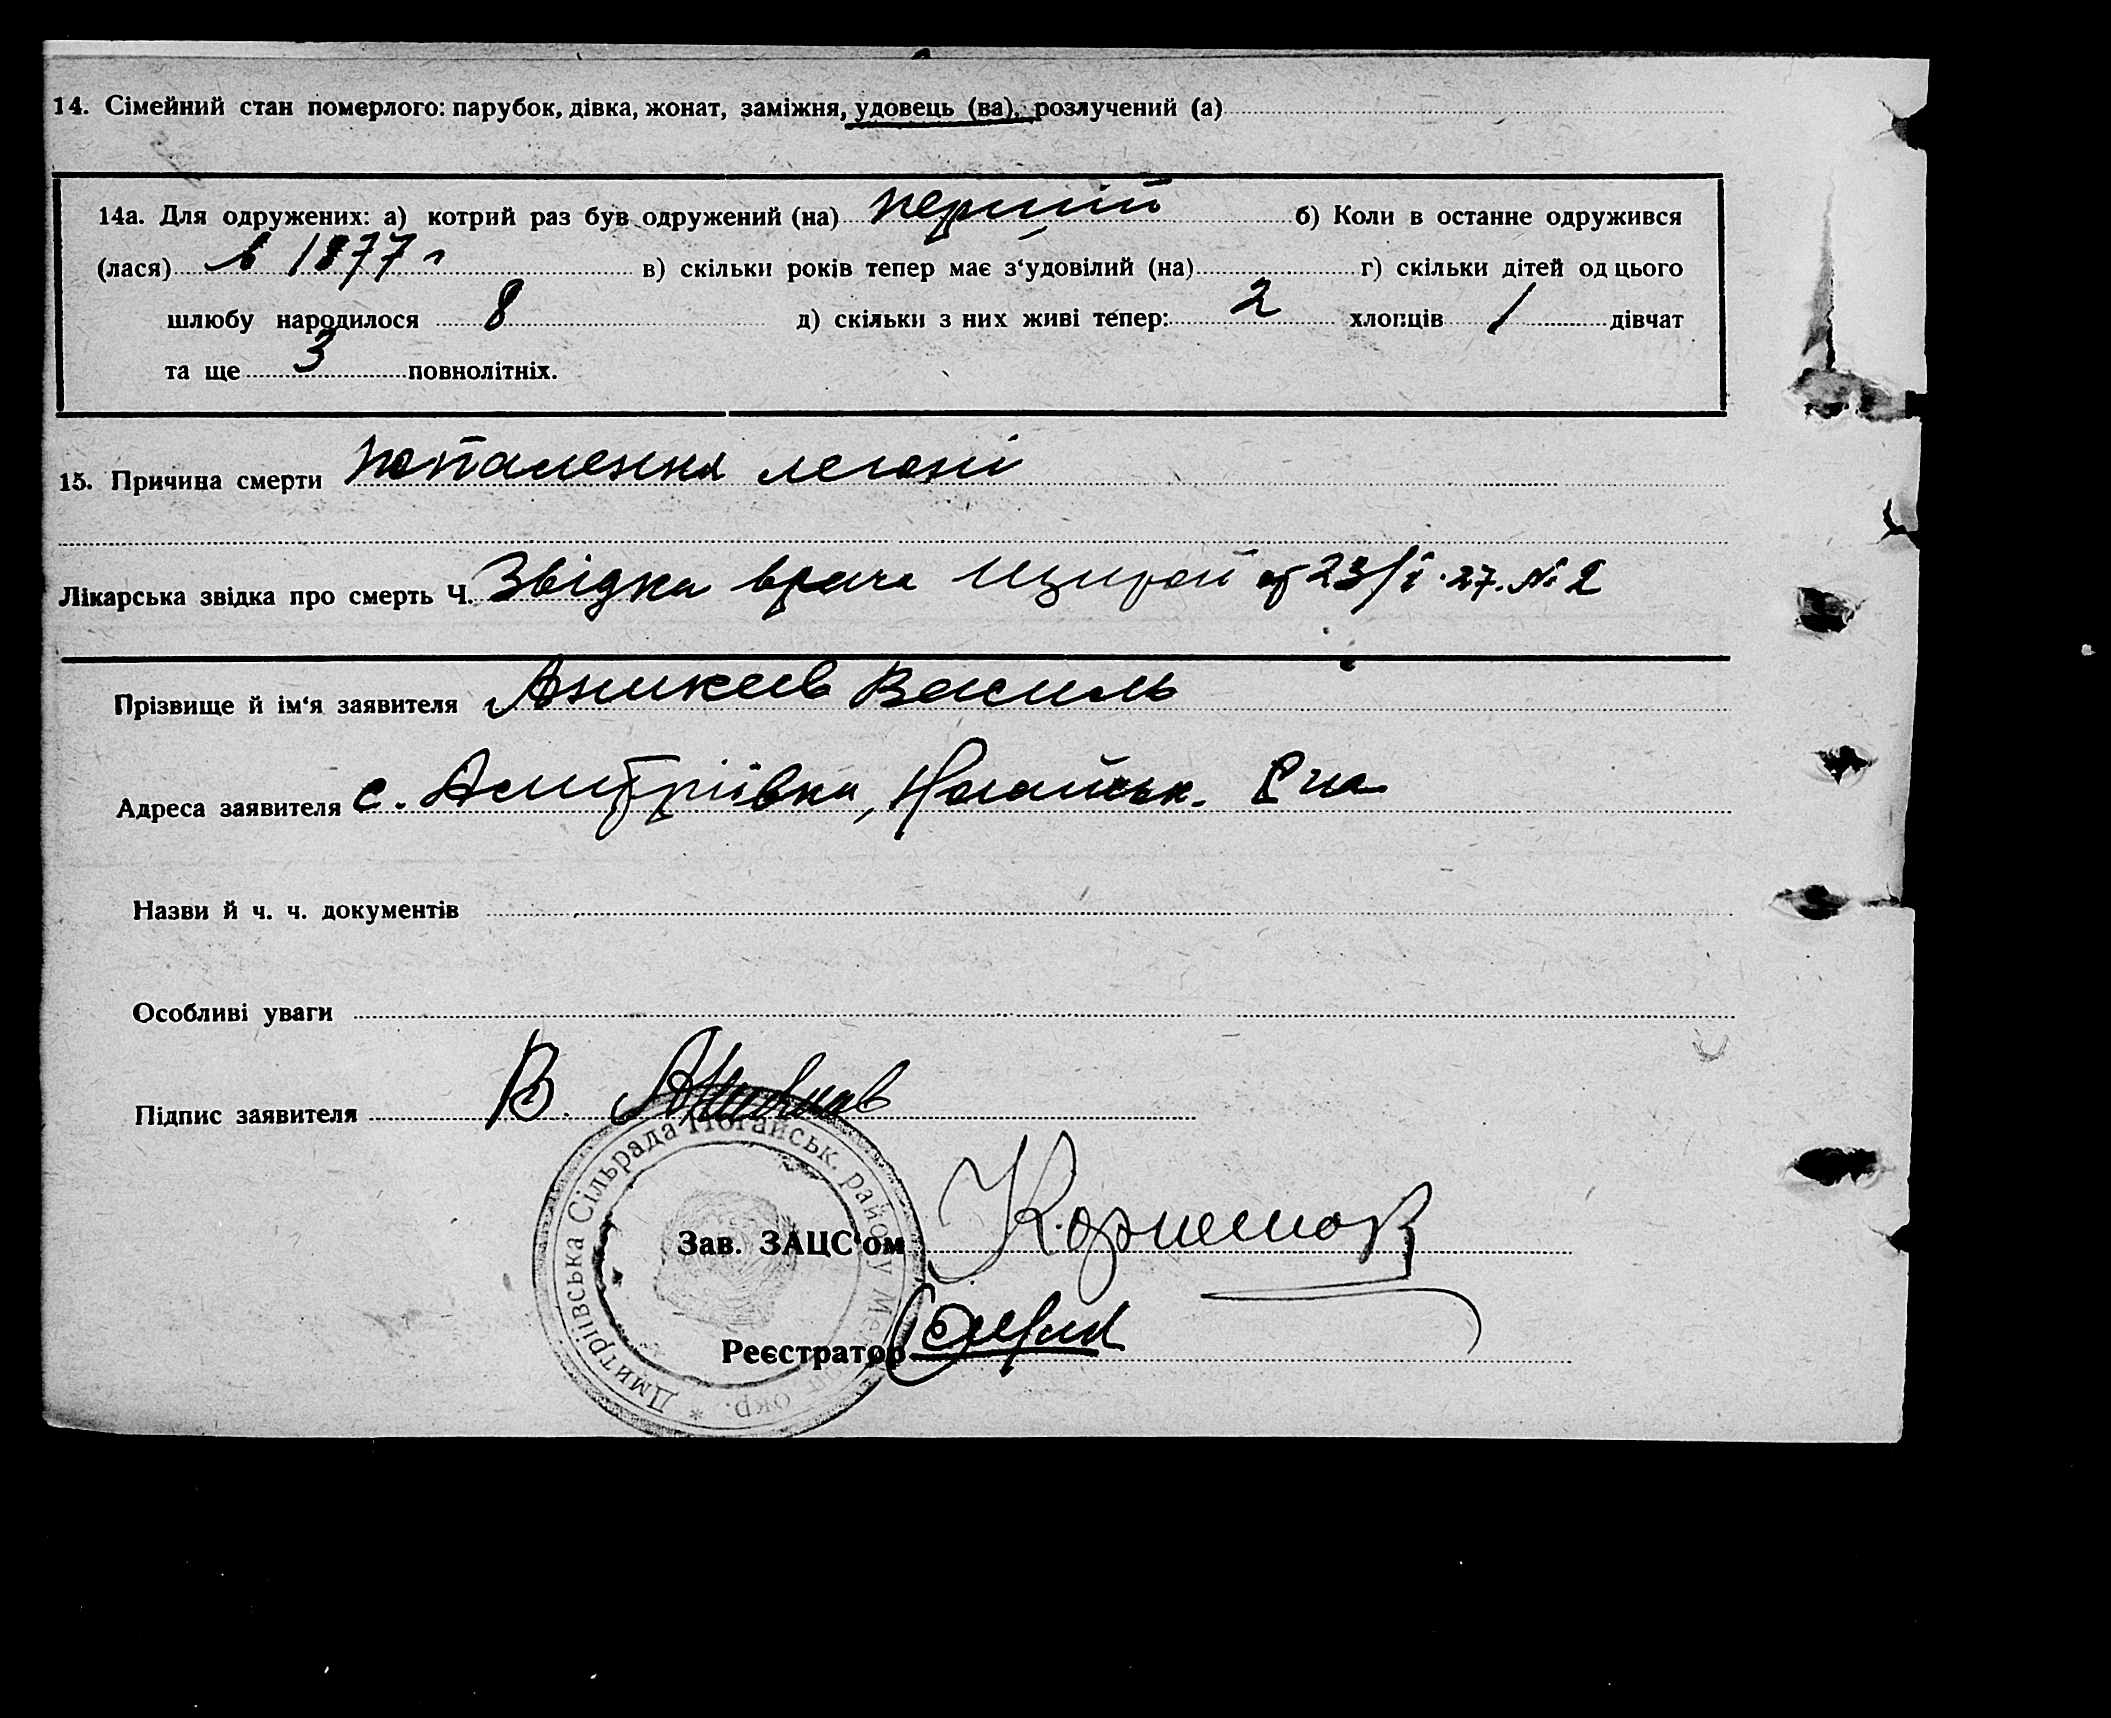 14. Сімейний стан померлого: парубок, дівка, жонат, заміжня, удовець (ва), розлучений (а)
14а. Для одружених: а) котрий раз був одружений (на) перший б) Коли в останнє одружився
(лася) в 1877 г в) скільки років тепер має з‘удовілий (на) г) скільки дітей од цього
шлюбу народилося 8 д) скільки з них живі тепер: 2 хлопців 1 дівчат
та ще 3 повнолітніх.
15. Причина смерти
Лікарська звідка про смерть Ч. Звідка врача от 23/I·27. № 2
Прізвище й ім‘я заявителя Аникеев Василь
Адреса заявителя с. Дмитріівка, Ногайськ. Р на
Назви й ч. ч. документів
Особливі уваги
Підпис заявителя В.
Дмитріівська Сільрада Ногайськ. району Мелит. окр. *
Зав. ЗАЦС‘ом
Реєстратор